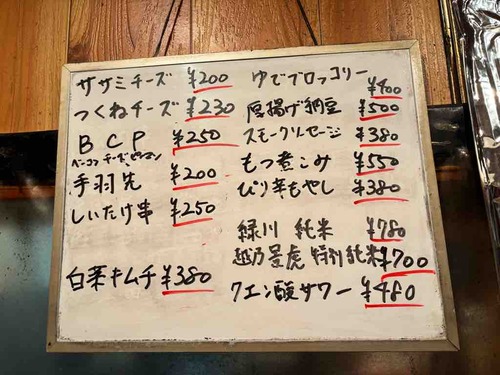 ササミチーズ ¥200
つくねチーズ ¥230
BCP ¥250
ベーコン チーズ ピーマン
手羽先 ¥200
しいたけ串 ¥250
白菜キムチ ¥380
ゆでブロッコリー ¥400
厚揚げ納豆 ¥500
スモークソーセージ ¥380
もつ煮こみ ¥550
ぴり辛もやし ¥380
緑川 純米 ¥780
越乃景虎 特別純米 ¥700
クエン酸サワー ¥480